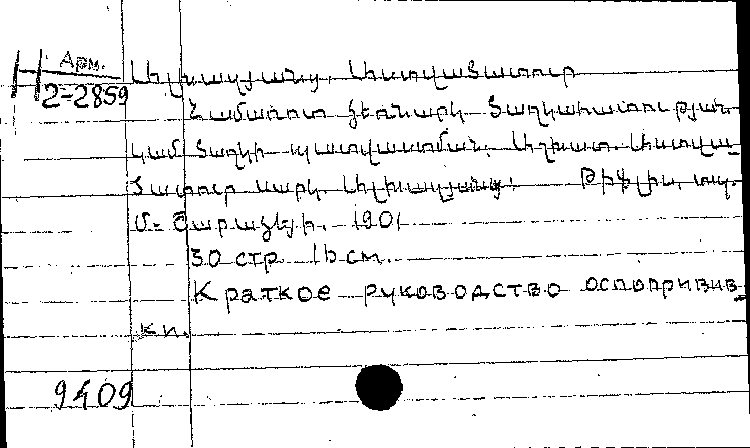 Арм.
H 2-2859
Մելխակյանց, Աստվածատուր
Համառոտ ձեռնարկ ծաղկահատության
կամ ծաղկի պատվաստման. Աշխատ. Աստվա-
ծատուր սարկ. Մելխակյանց. Թիֆլիս, տպ.
Մ. Շարաձեյի, 1901
30 стр. 16 см.
Краткое руководство оспопривив-
ки.
9409